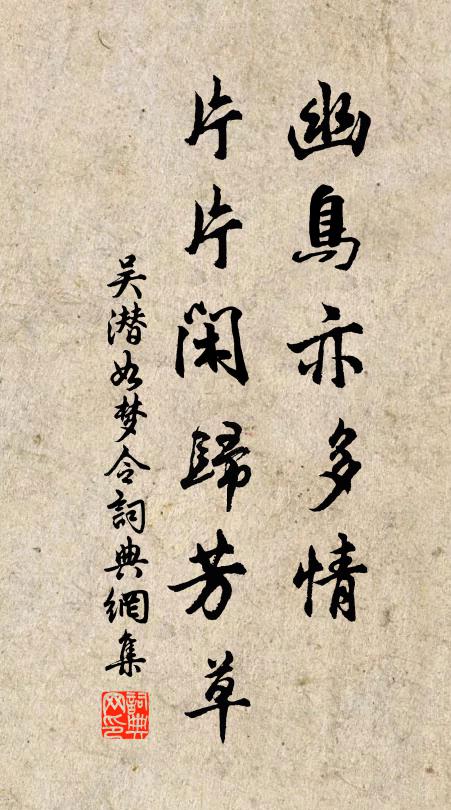 幽鳥亦多情
片片閑歸芳草
吴潛如梦令詞典網集
詞典网印